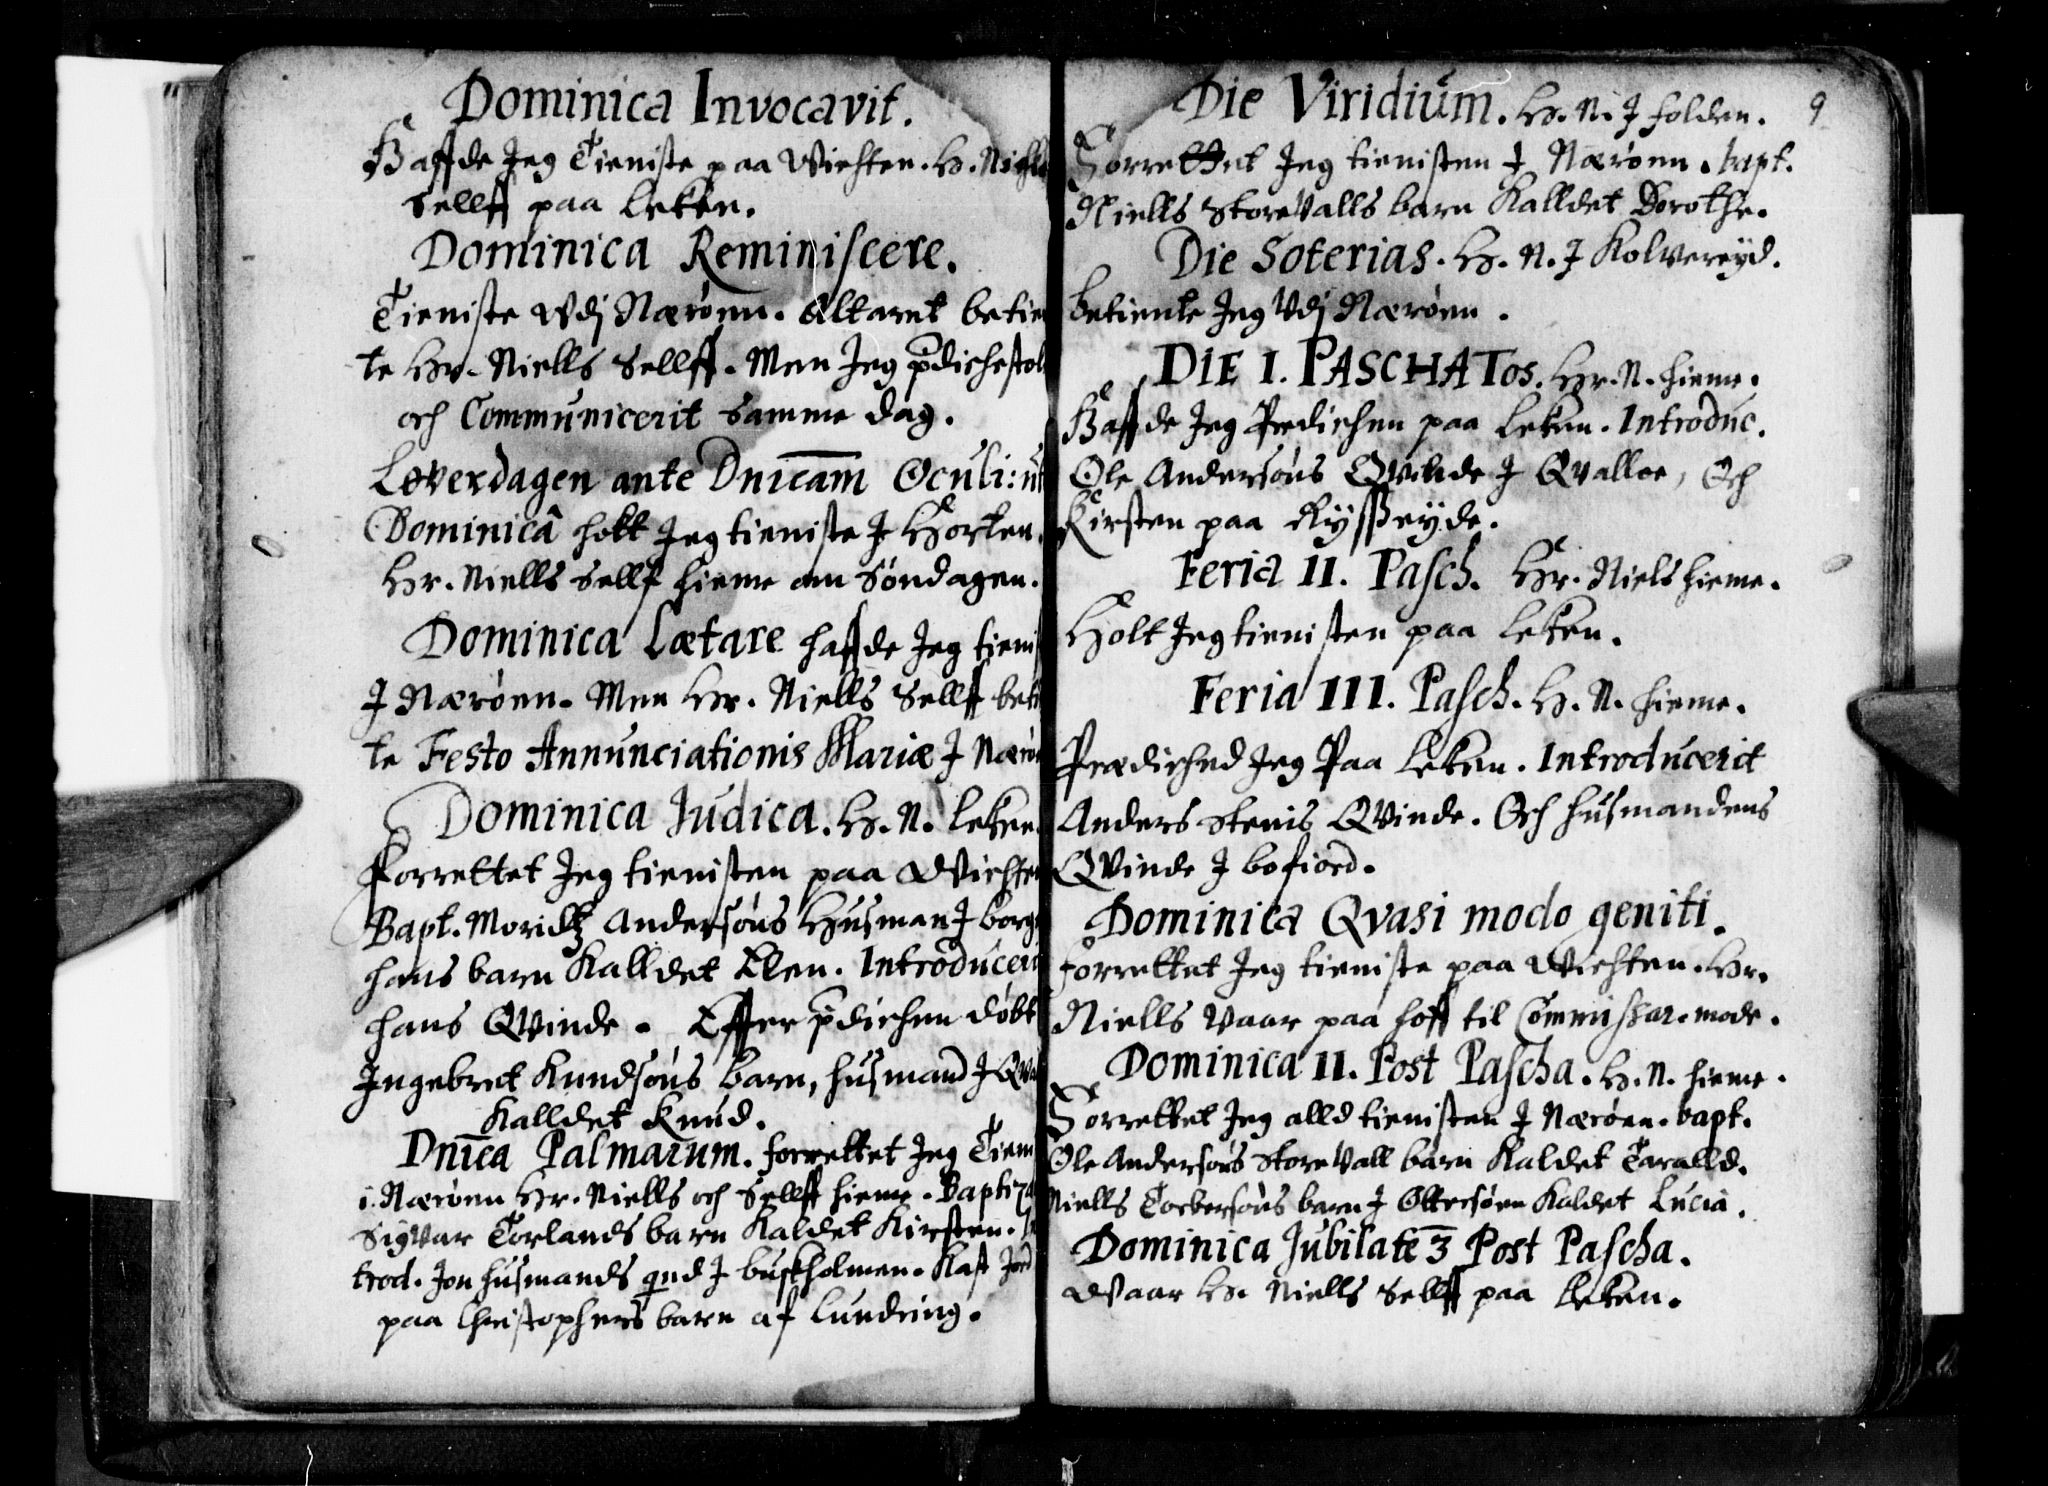 Dominica Invocavit.
Haffde Jeg Tieniste paa Wichten. H. Niells
Sellff paa Leken.
Dominica Reminiscere.
Tieniste Vdj Nærøen. Altaret betien
te Hr. Niells Sellff. Men Jeg p̄dichestol
och Communicerit Samme dag.
Løverdagen ante Dnicam Oculi: ut
Dominicâ holt Jeg tieniste J Horken.
Hr. Niells Sellf hieme om Søndagen.
Dominica Lætare haffde Jeg tienis
J Nærøen. Men Hr. Niells Sellff beti
te Festo Annunciationis Mariæ J Nærø
Dominica Judica. H. N. Leken.
Forrettet Jeg tienisten paa Wichten
Bapt. Moridtz Andersøns Husman J borg
hans barn Kalldet Elen. Introducerit
hans Qvinde. Effter p̄dichen døbt
Ingebret Knudsøns barn, husmand J Qva
Kalldet Knud.
Dnica Palmarum. forrettet Jeg Tien
i Nærøen Hr. Niells och Sellff hieme. Baptiza
Sigvar Torlands barn Kaldet Kirsten. In
trod. Jon husmands qnd J buskholmen. Kast Jord
paa Christophers barn af Lundring.
Die Viridium. H. N. J folden. 9
Forrettet Jeg tienisten J Nærøen. bapt.
Niells Storevalls barn Kalldet Dorothe.
Die Soterias. H. N. J Kolvereyd.
betiente Jeg Vdj Nærøen.
DIE I. PASCHATos. Hr. N. hieme.
Haffde Jeg Predichen paa Leken. Introduc.
Ole Andersøns Qvinde J Qvalloe, Och
Kirsten paa Rysseyde.
Feria II. Pasch. Hr. Niels hieme.
Holt Jeg tienisten paa Leken.
Feria III. Pasch. H. N. hieme.
Prædiched Jeg Paa Leken. Introducerit
Anders Stenis Qvinde. Och husmandens
Qvinde J bofiord.
Dominica Qvasi modo geniti.
forrettet Jeg tieniste paa Wichten. Hr.
Niells Vaar paa hoff til Commissar. mode.
Dominica II. Post Pascha. H. N. hieme.
Forrettet Jeg alld tienisten J Nærøen. bapt.
Ole Andersøns Storevall barn Kaldet Taralld.
Niells Torbersøns barn J Ottersøen Kaldet Lucia.
Dominica Jubilate 3 Post Pascha.
Waar H. Niells Sellff paa Leken.